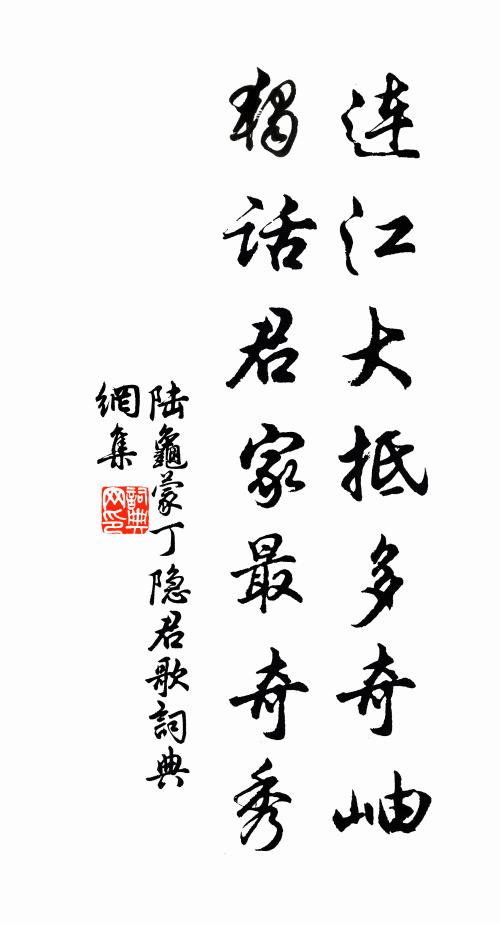 连江大抵多奇岫
独话君家最奇秀
陆龜蒙丁隐君歌詞典
網集
詞典
网印